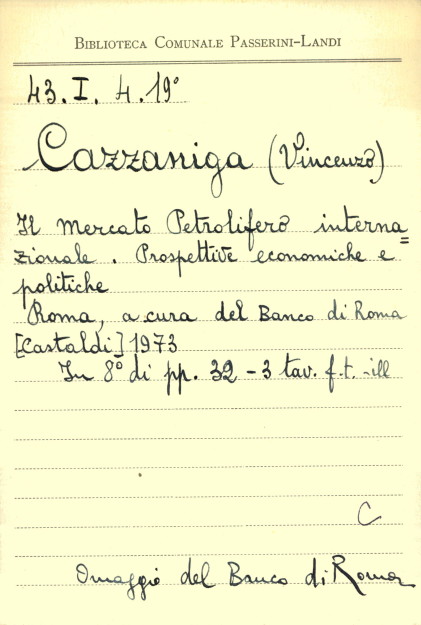 BIBLIOTECA COMUNALE PASSERINI-LANDI
43. I. 4. 19°
Cazzaniga (Vincenzo)
Il Mercato Petrolifero interna=
zionale. Prospettive economiche e
politiche
Roma, a cura del Banco di Roma
[Castaldi] 1973
In 8° di pp. 32 - 3 tav. f.t. - ill
C
Omaggio del Banco di Roma